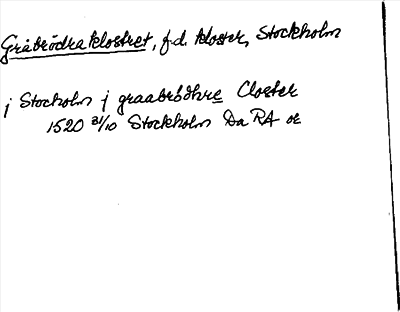 Gråbrödraklostret, f.d. kloster, Stockholm
j Stocholm j graabrödhre Closter
1520 31/10 Stockholm Da RA or